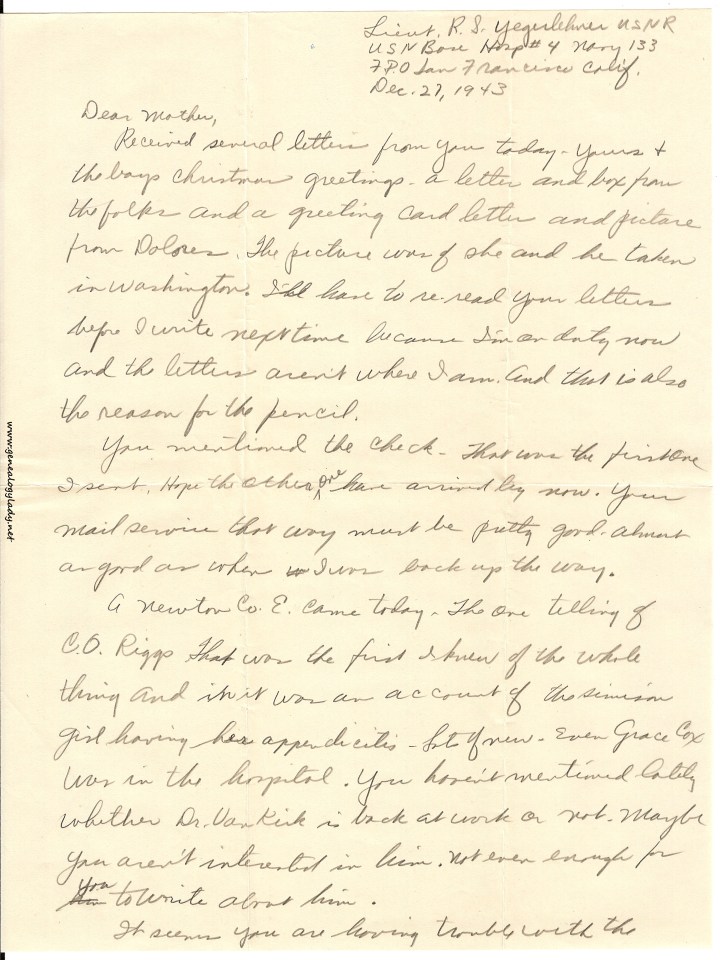 Lieut. R. S. Yegerlehner USNR
USN Base Hosp # 4 Navy 133
FPO San Francisco Calif.
Dec. 27, 1943
Dear Mother,
Received several letters from you today - yours +
the boys christmas greetings - a letter and box from
the folks and a greeting card letter and picture
from Dolores. The picture was of she and he taken
in Washington. I'll have to re-read your letters
before I write next time because I'm on duty now
and the letters aren't where I am. And that is also
the reason for the pencil.
You mentioned the check - That was the first one
I sent. Hope the other one have arrived by now. Your
mail service that way must be pretty good - almost
as good as when I was back up the way.
A Newton Co. E. came today - The one telling of
C.O. Riggs That was the first I knew of the whole
thing and in it was an account of the Simison
girl having her appendicitis - lots of new - Even Grace Cox
was in the hospital. You haven't mentioned lately
whether Dr. Van Kirk is back at work or not. Maybe
you aren't interested in him. Not even enough for
you to write about him.
It seems you are having trouble with the
www.genealogylady.net